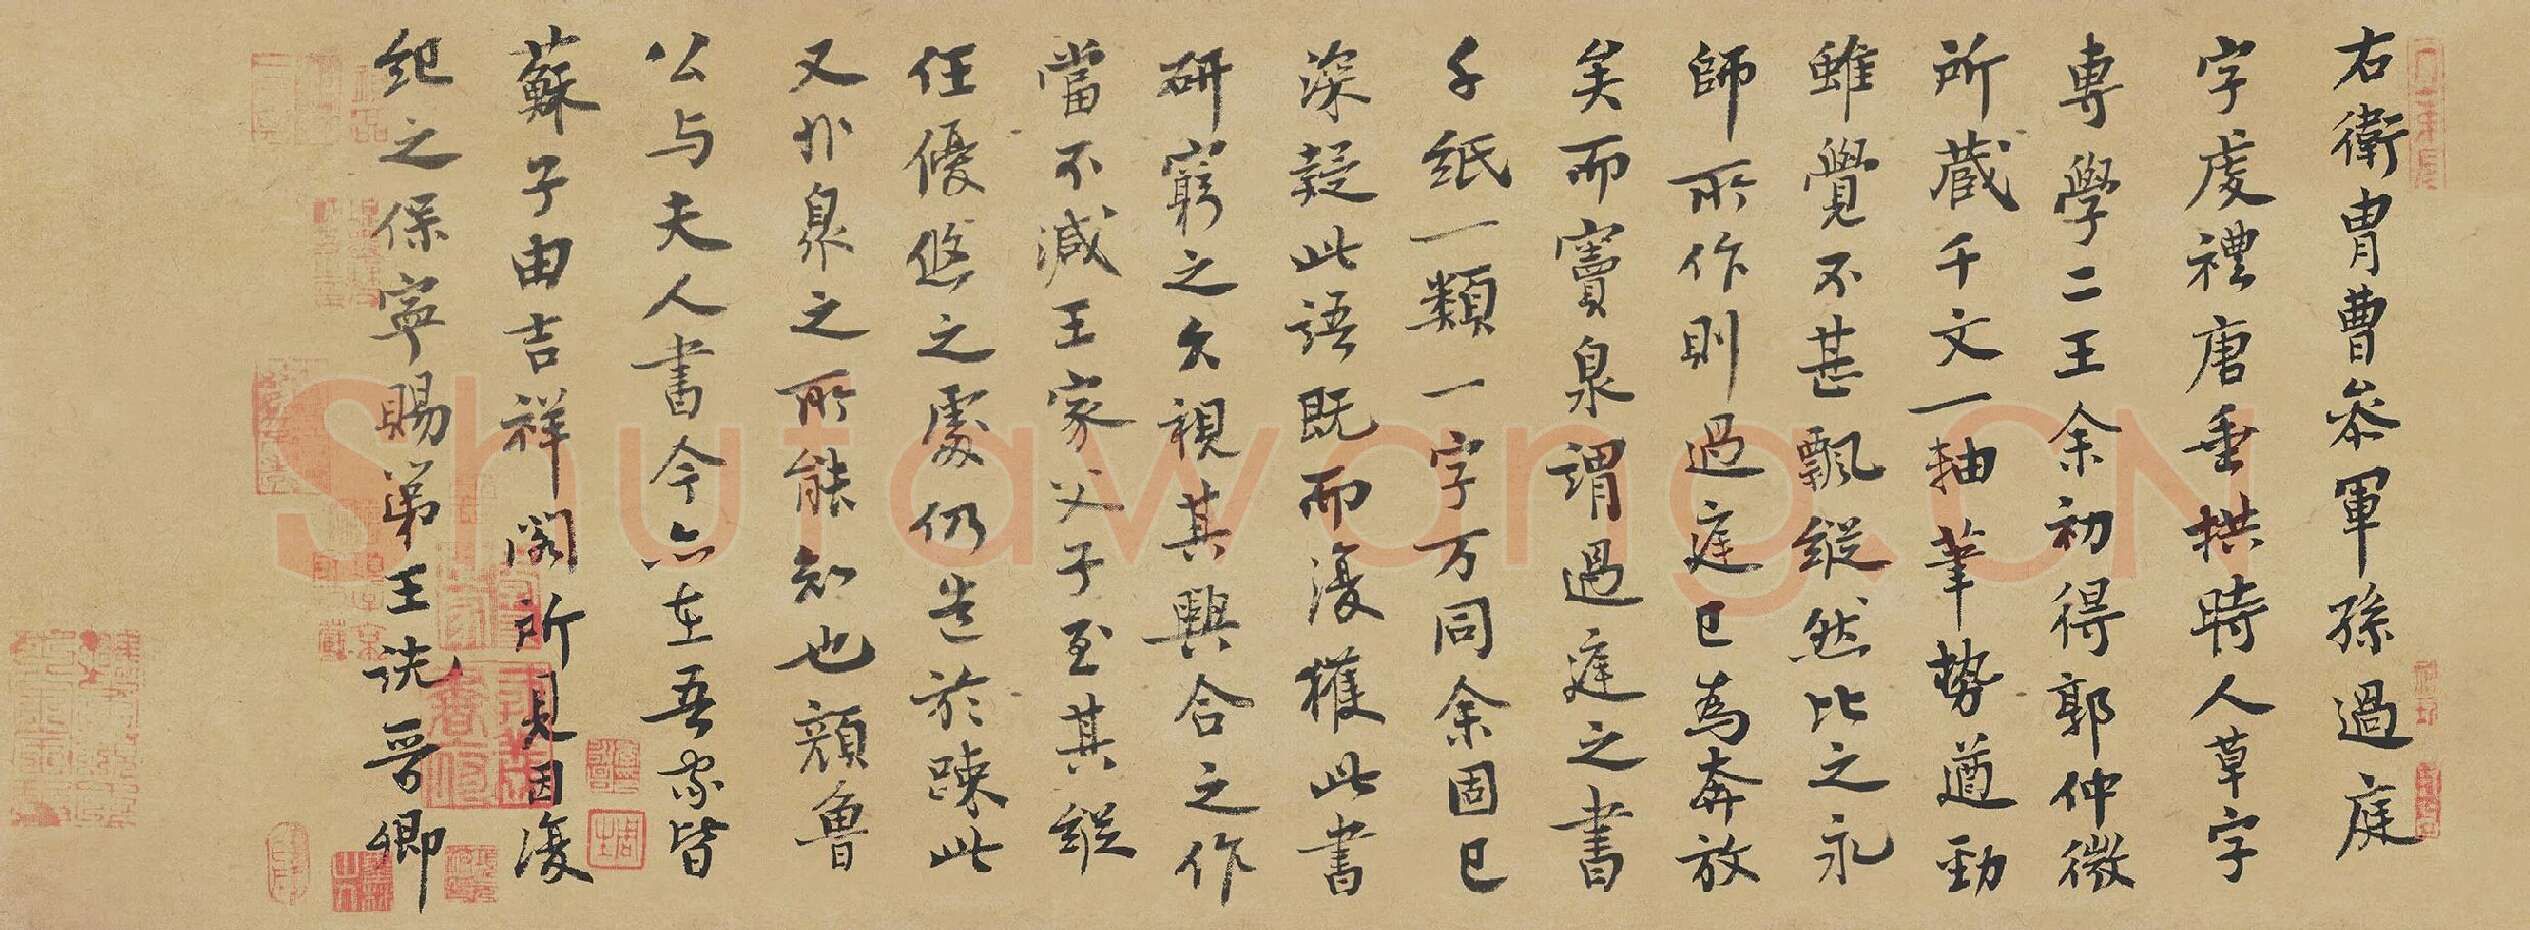 右衛冑曹叅軍孫過庭
字虔禮唐垂拱時人草字
專學二王余初得郭仲微
所蔵千文一軸筆勢遒勁
雖覺不甚飄縱然比之永
師所作則過庭已為奔放
矣而竇泉謂過庭之書
千紙一類一字万同余固已
深疑此語既而復獲此書
研窮之久視其興合之作
當不減王家父子至其縱
任優悠之處仍造於踈此
又非泉之所能知也顔魯
公与夫人書今亦在吾家皆
蘇子由吉祥閣所見因復
紀之保寧賜弟王詵晉卿
Shufawang.CN